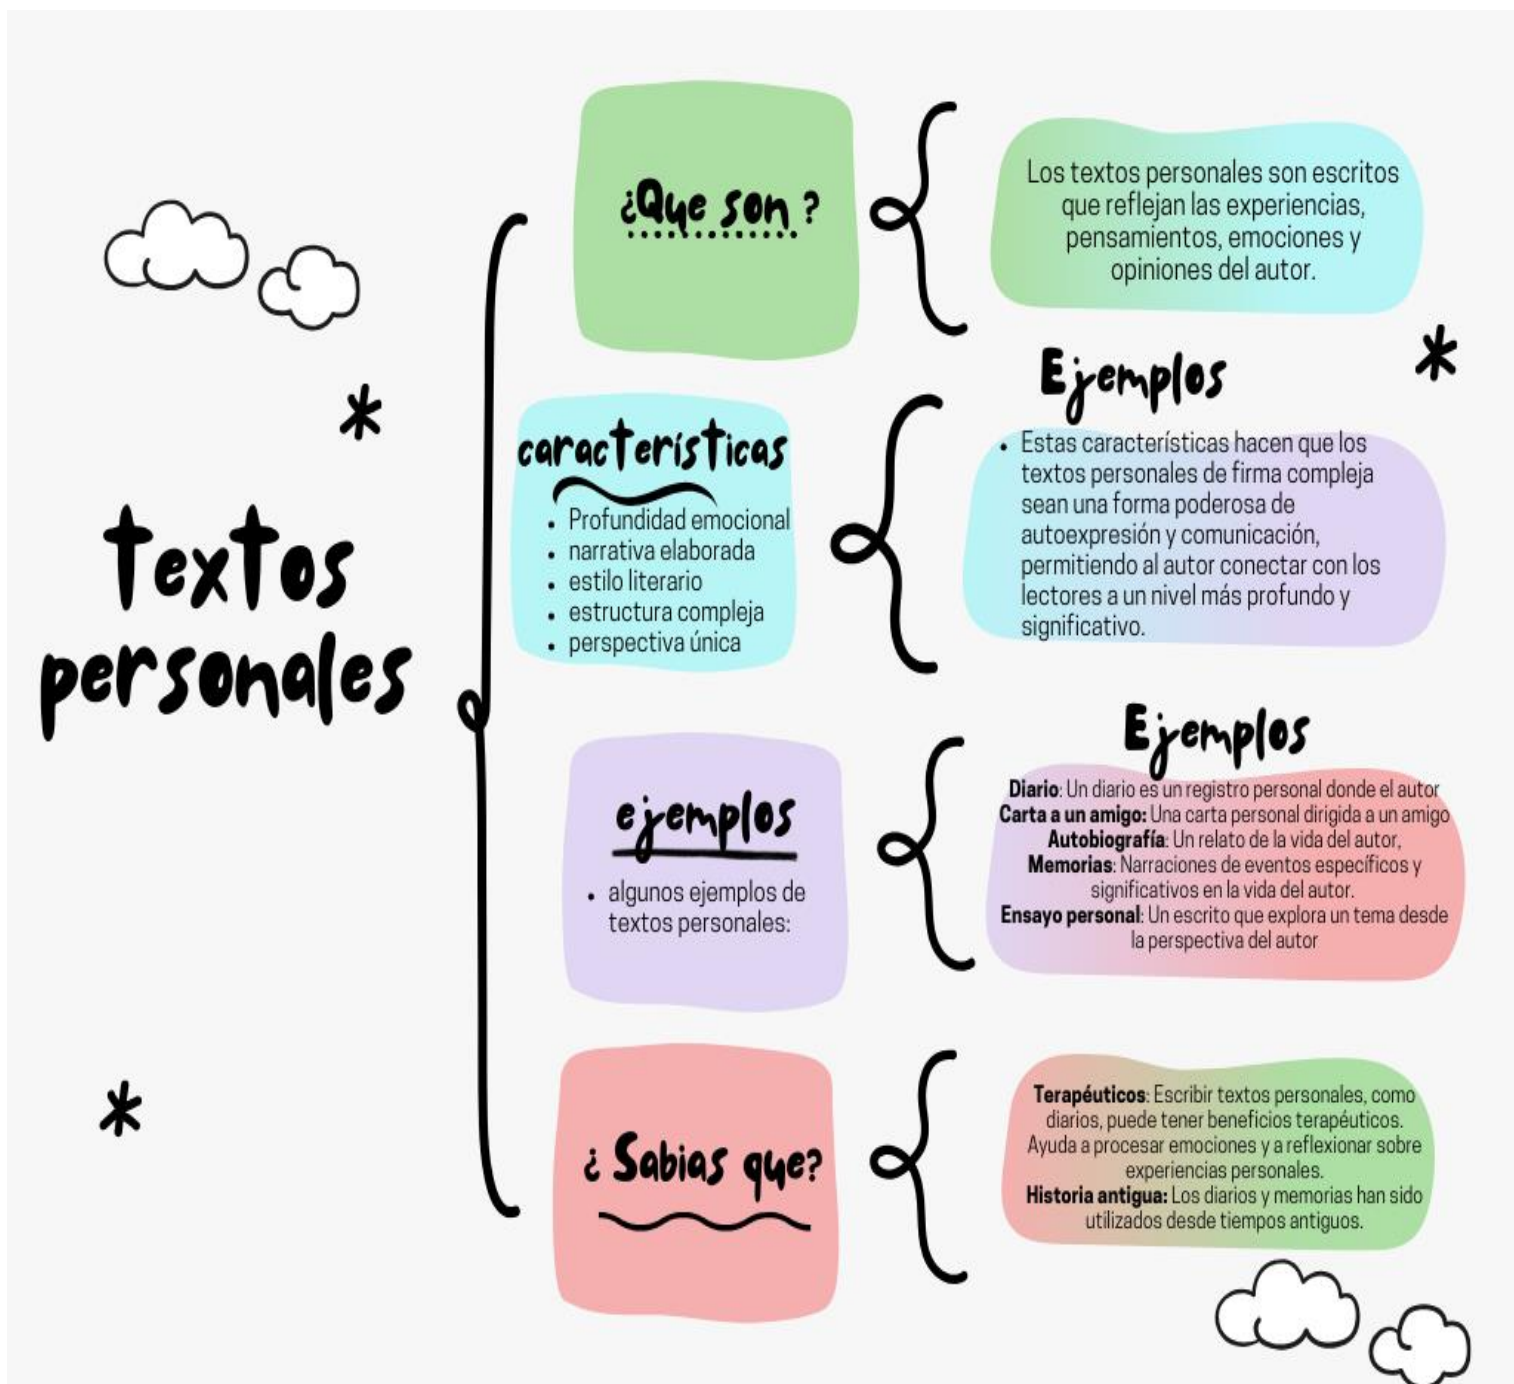 textos
personales
¿Que son ?
Los textos personales son escritos
que reflejan las experiencias,
pensamientos, emociones y
opiniones del autor.
características
• Profundidad emocional
• narrativa elaborada
• estilo literario
• estructura compleja
• perspectiva única
Ejemplos
• Estas características hacen que los
textos personales de firma compleja
sean una forma poderosa de
autoexpresión y comunicación,
permitiendo al autor conectar con los
lectores a un nivel más profundo y
significativo.
ejemplos
• algunos ejemplos de
textos personales:
Ejemplos
Diario: Un diario es un registro personal donde el autor
Carta a un amigo: Una carta personal dirigida a un amigo
Autobiografía: Un relato de la vida del autor,
Memorias: Narraciones de eventos específicos y
significativos en la vida del autor.
Ensayo personal: Un escrito que explora un tema desde
la perspectiva del autor
¿ Sabias que?
Terapéuticos: Escribir textos personales, como
diarios, puede tener beneficios terapéuticos.
Ayuda a procesar emociones y a reflexionar sobre
experiencias personales.
Historia antigua: Los diarios y memorias han sido
utilizados desde tiempos antiguos.